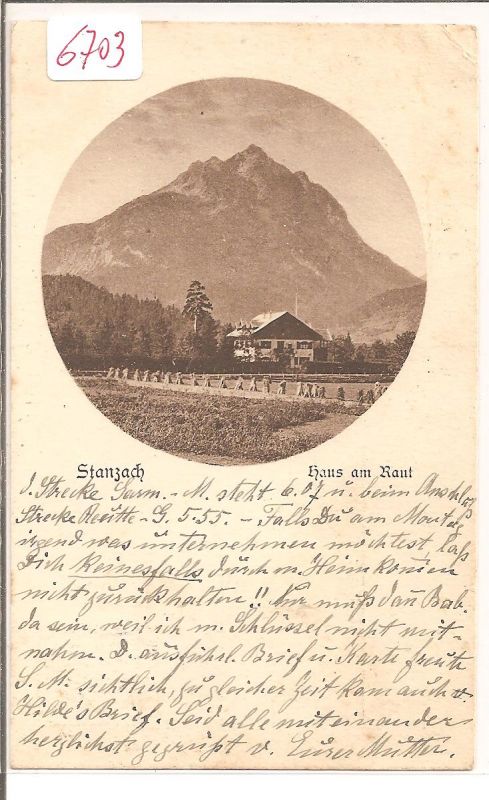 6703
Stanzach Haus am Raut
d. Strecke Garm. - M. steht 6.07 u. beim Anschluß
Strecke Reutte - G. 5.55. - Falls Du am Montag
irgend was unternehmen möchtest, laß
Dich keinesfalls durch m. Heimkomen
nicht zurückhalten!! Nur muß dan Bab.
da sein, weil ich m. Schlüssel nicht mit-
nahm. D. ausführl. Brief u. Karte freute
S. M. sichtlich, zu gleicher Zeit kam auch v.
Hilde's Brief. Seid alle miteinander
herzlichst gegrüßt v. Eurer Mutter.